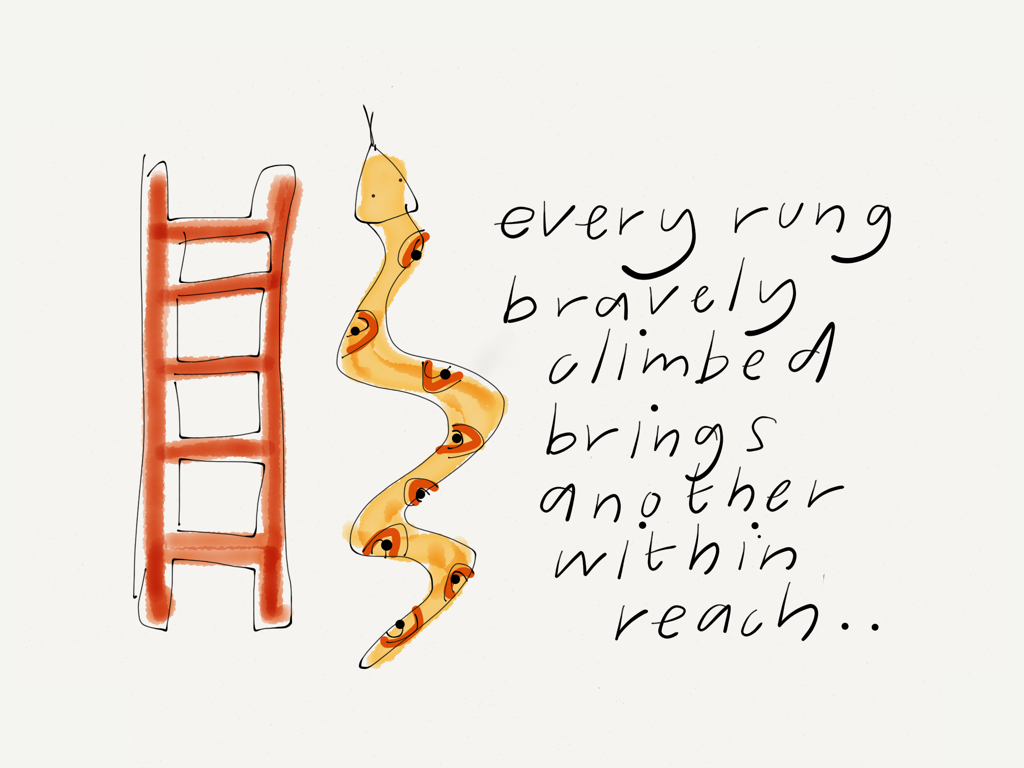 every rung
bravely
climbed
brings
another
within
reach..